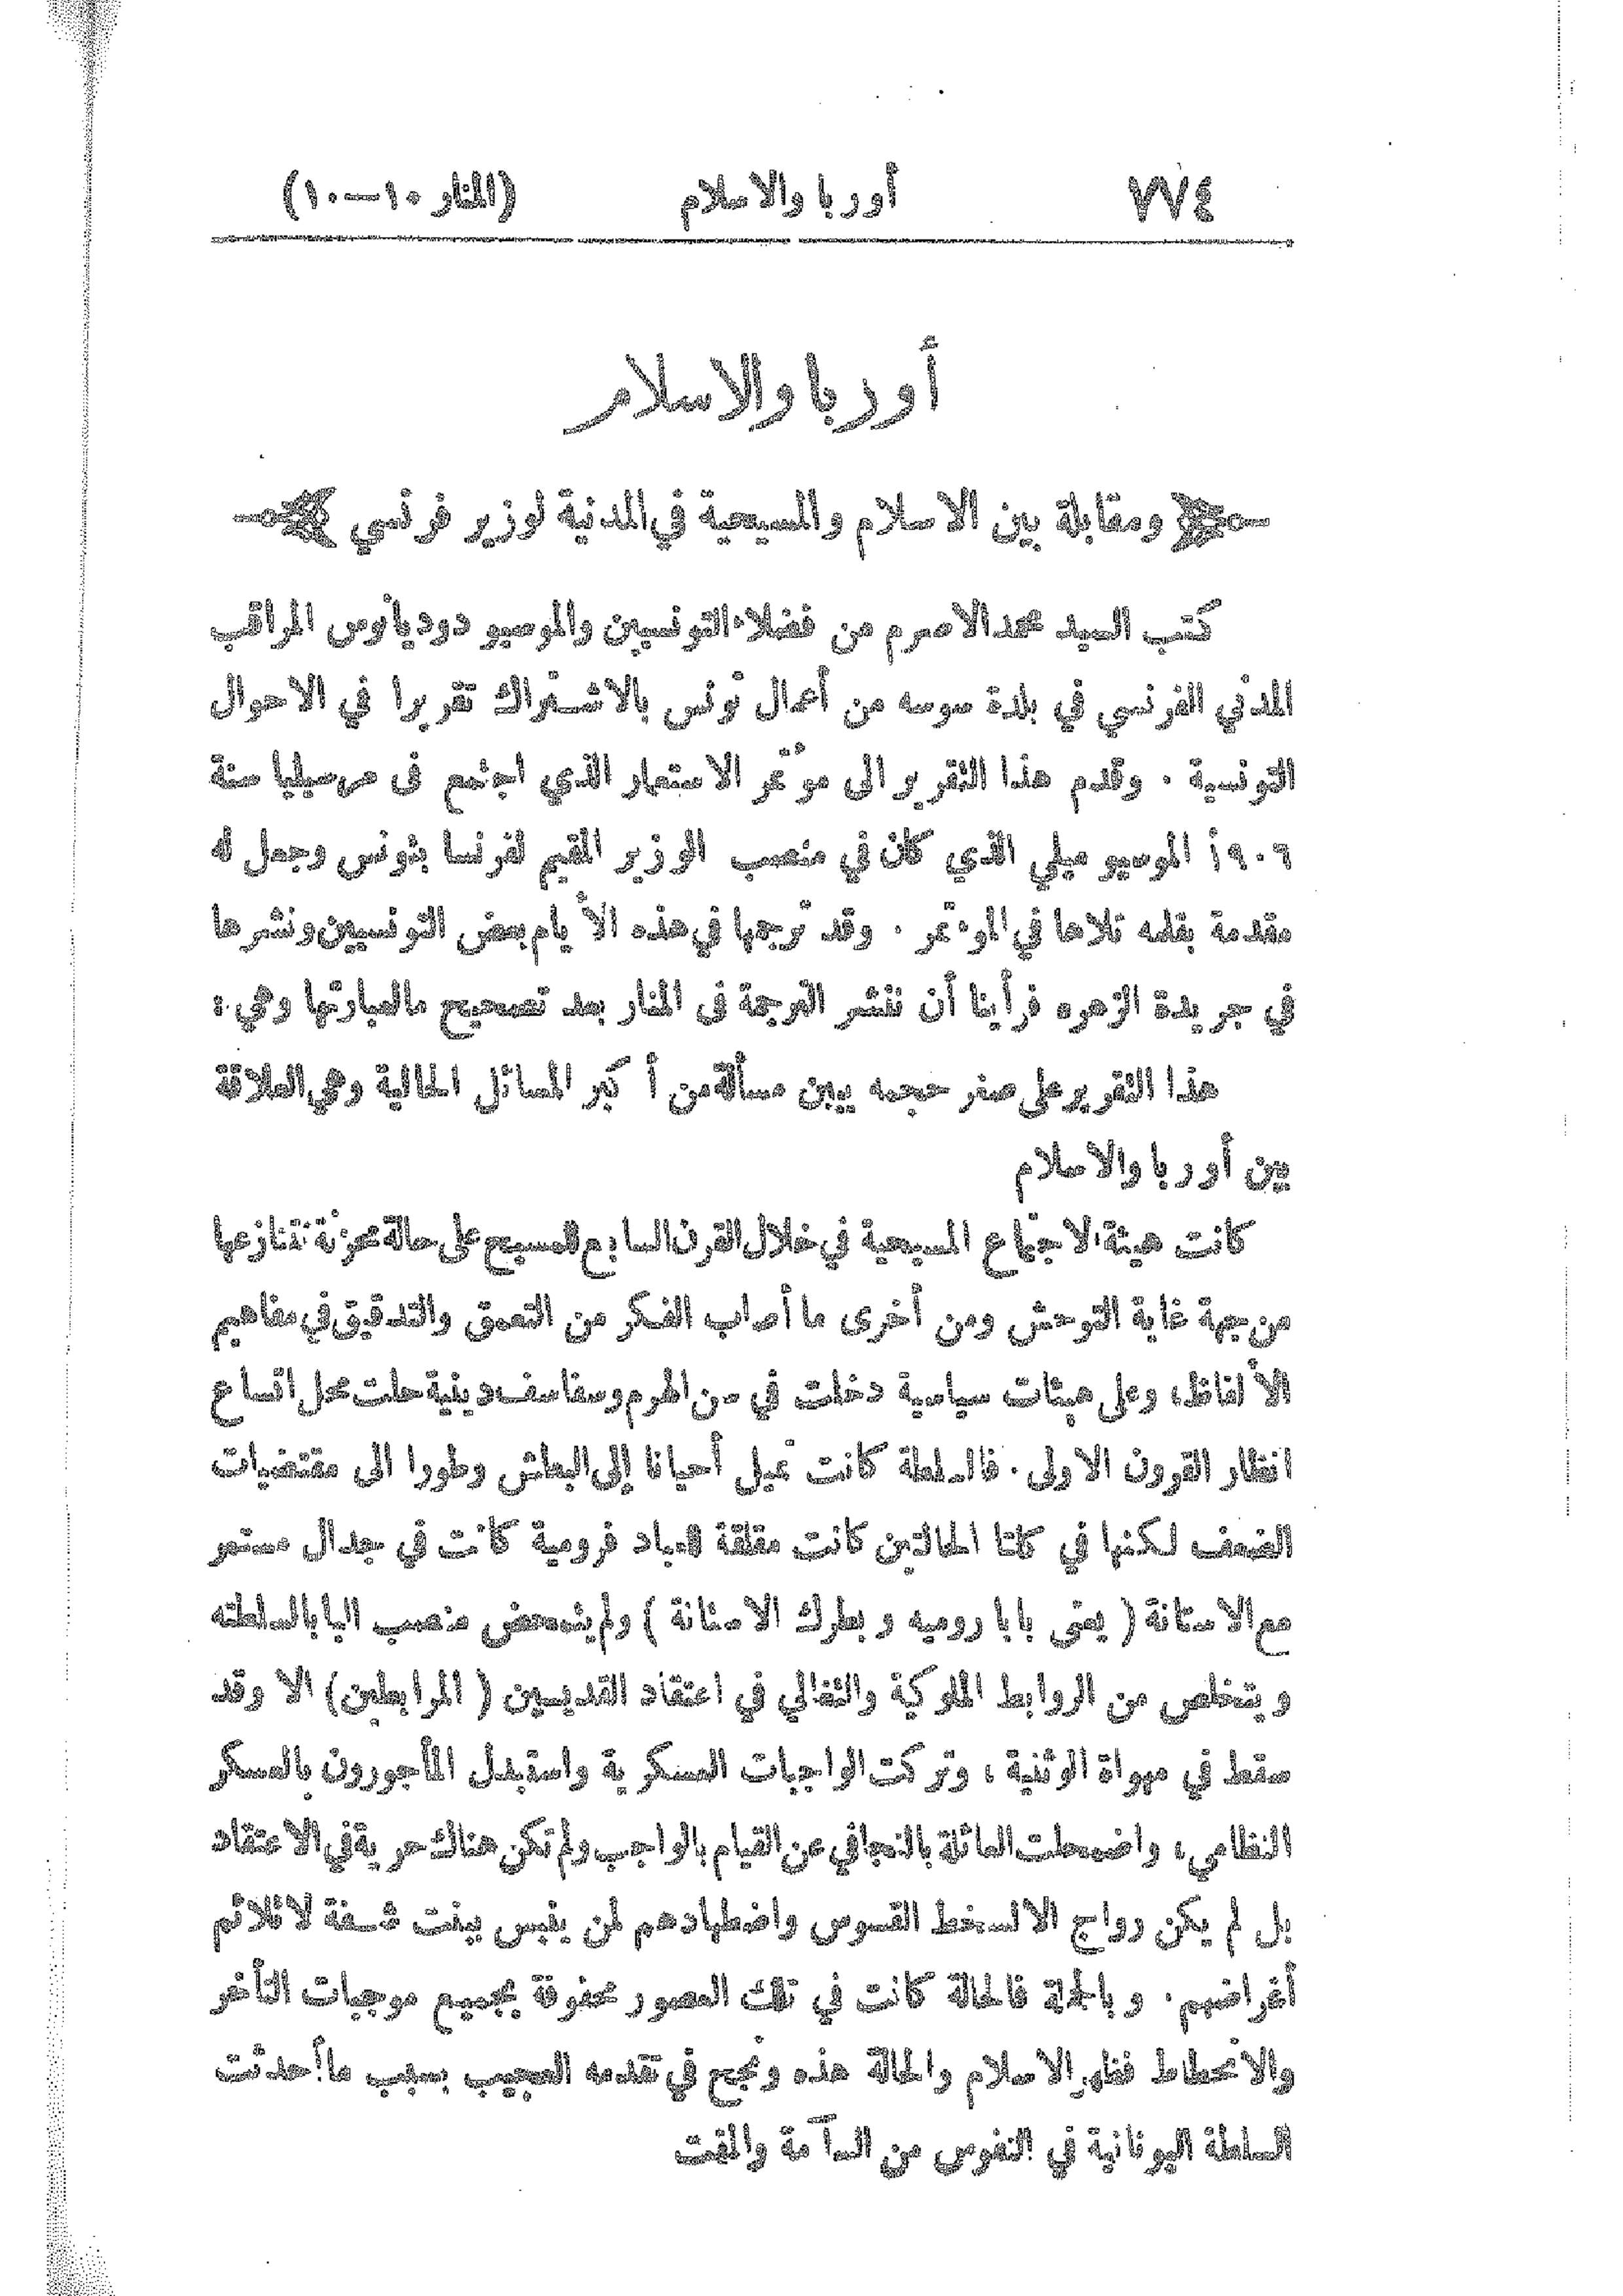 ٧٧٤ أوربا والاسلام (المنار ١٠–١٠)
أوربا والاسلام
ومقابلة بين الاسلام والمسيحية في المدنية لوزير فرنسي
كتب السيد محمد الاصرم من فضلاء التونسيين والموسيو دوديانوس المراقب
المدني الفرنسي في بلدة سوسه من أعمال تونس بالاشتراك تقريرا في الاحوال
التونسية . وقدم هذا التقرير الى مؤتمر الاستعمار الذي اجتمع فى مرسيليا سنة
١٩٠٦ الموسيو ميلي الذي كان في منصب الوزير المقيم لفرنسا بتونس وجعل له
مقدمة بقلمه تلاها في المؤتمر . وقد ترجمها في هذه الأيام بعض التونسيين ونشرها
في جريدة الزهره فرأينا أن ننشر الترجمة فى المنار بعد تصحيح ما لعبارتها وهي :
هذا التقرير على صغر حجمه يبين مسألة من أكبر المسائل الحالية وهي العلاقة
بين أوربا والاسلام
كانت هيئة الاجتماع المسيحية في خلال القرن السابع للمسيح على حالة محزنة تتنازعها
من جهة غاية التوحش ومن أخرى ما أصاب الفكر من التعمق والتدقيق في مفاهيم
الألفاظ، وعلى هيئات سياسية دخلت في سن الهرم وسفاسف دينية حلت محل اتساع
انظار القرون الاولى . فالسلطة كانت تميل أحيانا إلى البطش وطورا الى مقتضيات
الضعف لكنها في كلتا الحالتين كانت مقلقة للعباد فرومية كانت في جدال مستمر
مع الاستانة ( يعنى بابا روميه وبطرك الاستانة ) ولم يتمحض منصب البابا لسلطته
ويتخلص من الروابط الملوكية والتغالي في اعتقاد القديسين ( المرابطين) الا وقد
سقط في مهواة الوثنية ، وتركت الواجبات العسكرية واستبدل المأجورون بالعسكر
النظامي، واضمحلت العائلة بالتجافي عن القيام بالواجب ولم تكن هناك حرية في الاعتقاد
بل لم يكن رواج الا لسخط القسوس واضطهادهم لمن ينبس ببنت شفة لا تلائم
أغراضهم . وبالجملة فالحالة كانت في تلك العصور محفوفة بجميع موجبات التأخر
والانحطاط فظهر الاسلام والحالة هذه ونجح في تقدمه العجيب بسبب ما أحدثت
السلطة اليونانية في النفوس من السآمة والمقت